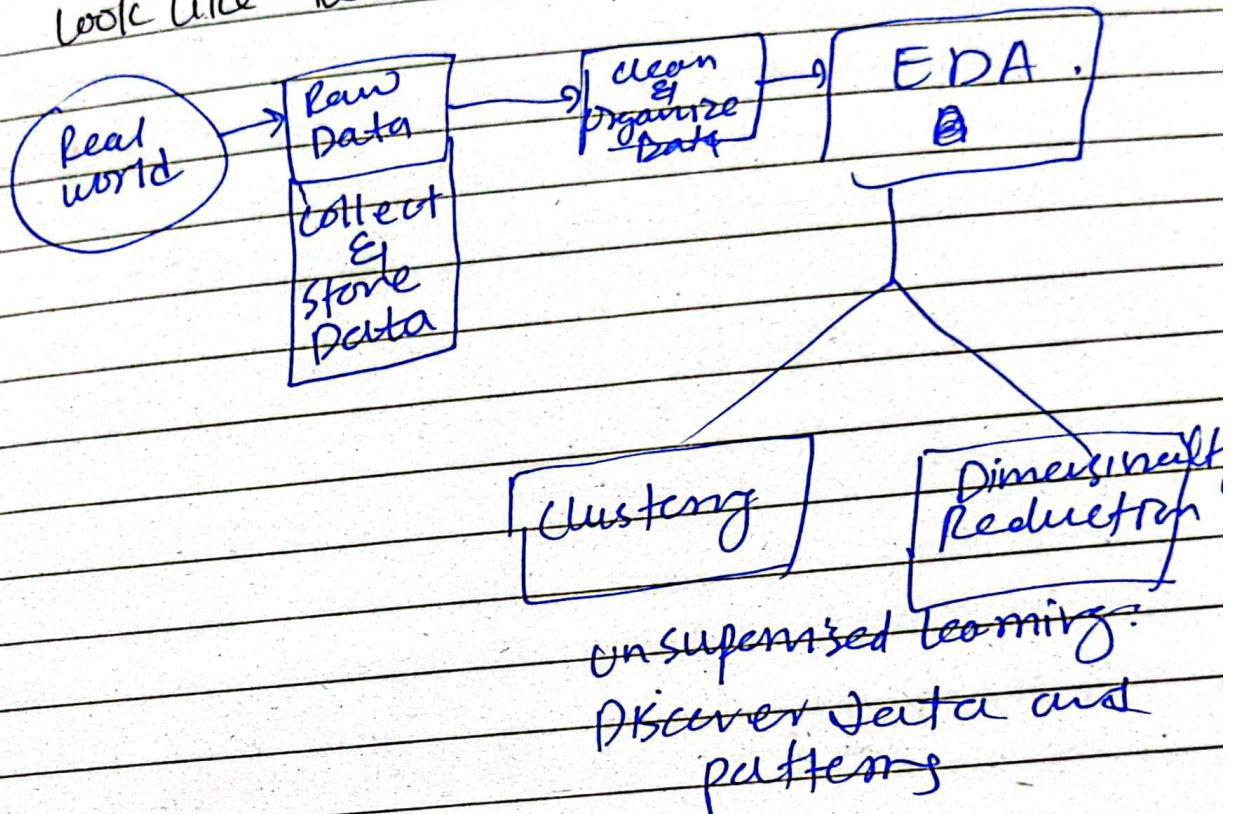 look like
Real
world
Raw
Data
Collect
&
Store
Data
Clean
&
organize
Data
EDA.
Clustering
Dimensinalt
Reduction
unsupervised learning:
Discover data and
patterns